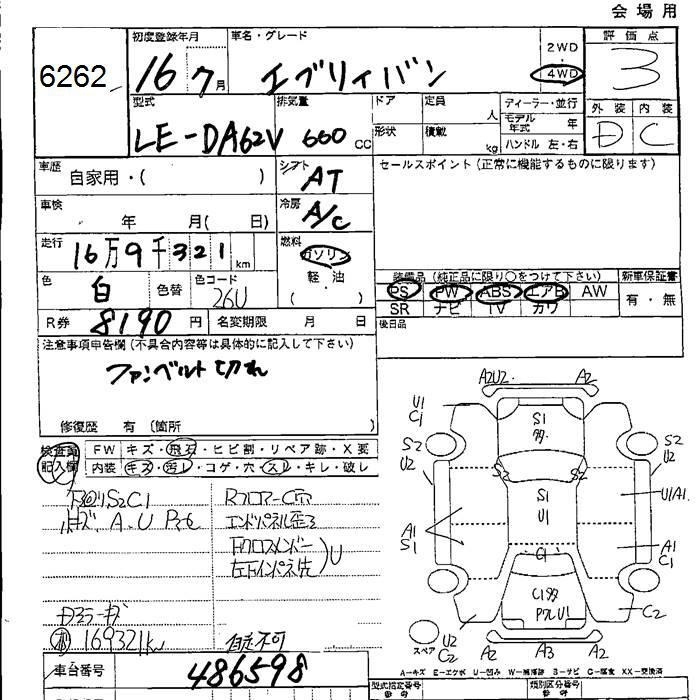 会場用
6262
初度登録年月
16 7月
車名・グレード
エブリィバン
2WD
4WD
評価点
3
型式
LE-DA62V
排気量
660 CC
ドア
定員
人
形状
積載
kg
ディーラー・並行
モデル年式 年
ハンドル 左・右
外装 内装
D C
車歴
自家用・( )
シフト
AT
セールスポイント(正常に機能するものに限ります)
車検
年 月( 日)
冷房
A/C
走行
16万9千321km
燃料
ガソリン
軽・油
( )
色
白
色替
色コード
26U
装備品(純正品に限り○をつけて下さい)
新車保証書
PS PW ABS エアB AW
SR ナビ TV カワ
有・無
R券 8190円
名変期限 月 日
後日品
注意事項申告欄(不具合内容等は具体的に記入して下さい)
ファンベルト切れ
修復歴 有(箇所 )
検査員記入欄
FW キズ・飛石・ヒビ割・リペア跡・X変
内装 キズ・汚レ・コゲ・穴・スレ・キレ・破レ
下回リS2C1
Rフロアー
エンドパネル歪ろ
FクロスメンバーU
左Fインパネ先
169321km 自走不可
車台番号
486598
A2U2 A2
U1
C1
S1
S2
U2
S2
U2
S2 S2
S1
U1
U1A1
A1
S1
A1
C1
C1
U1
C2
スペア
U2
C2
A2 A3 A2
A-キズ E-エクボ U-凹み W-補修跡 S-サビ C-腐食 XX-交換済
型式指定番号
類別区分番号